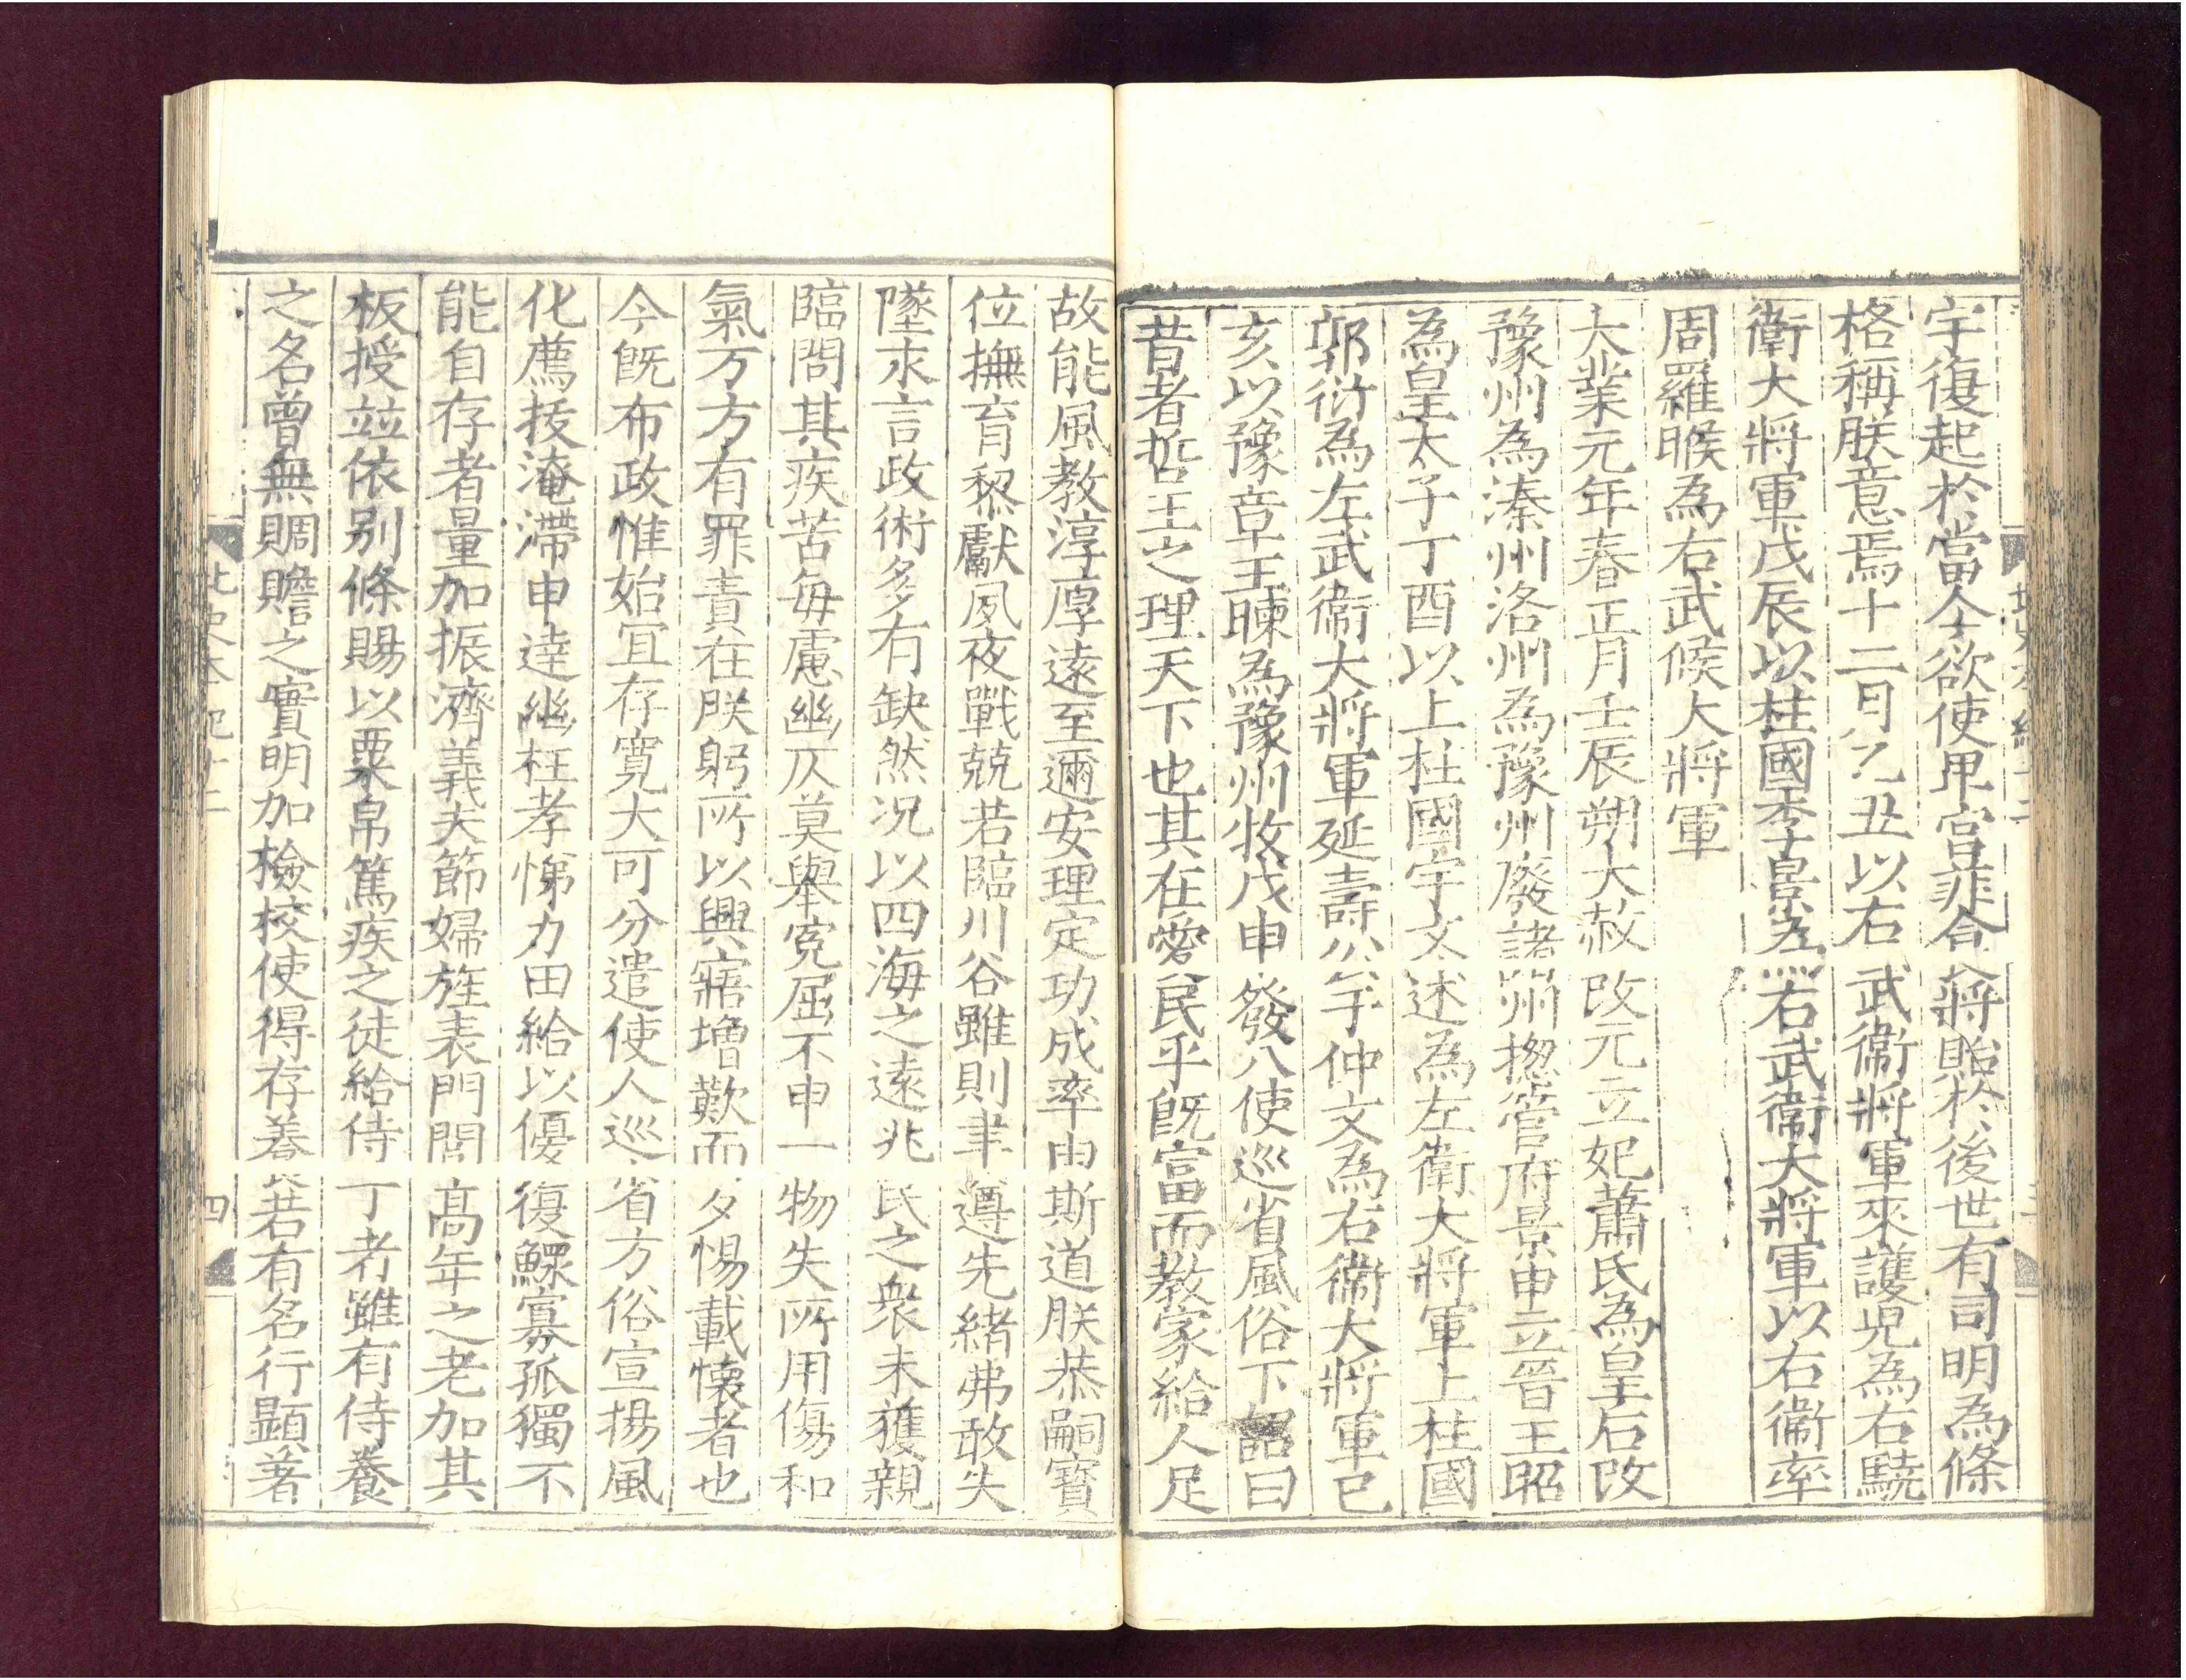 宇復起於當今欲使卑宮菲食將貽於後世有司明為條
格稱朕意焉十二月乙丑以右武衛將軍來護兒為右驍
衛大將軍戊辰以柱國李景為右武衛大將軍以右衛率
周羅睺為右武候大將軍
大業元年春正月壬辰朔大赦改元立妃蕭氏為皇后改
豫州為溱州洛州為豫州廢諸州揔管府景申立晉王昭
為皇太子丁酉以上柱國宇文述為左衛大將軍上柱國
郭衍為左武衛大將軍延壽公于仲文為右衛大將軍已
亥以豫章王暕為豫州牧戊申發八使巡省風俗下詔曰
昔者哲王之理天下也其在愛民乎旣富而教家給人足
故能風教淳厚遠至邇安理定功成率由斯道朕恭嗣寶
位撫育黎獻夙夜戰兢若臨川谷雖則聿遵先緒弗敢失
墜永言政術多有缺然况以四海之遠兆民之衆未獲親
臨問其疾苦每慮幽仄莫舉寃屈不申一物失所用傷和
氣万方有罪責在朕躬所以興寤增歎而夕惕載懷者也
今旣布政惟始宜存寬大可分遣使人巡省方俗宣揚風
化薦拔淹滯申達幽枉孝悌力田給以優復鰥寡孤獨不
能自存者量加振濟義夫節婦旌表門閭高年之老加其
板授竝依別條賜以粟帛篤疾之徒給侍丁者雖有侍養
之名曾無賙贍之實明加檢校使得存養若有名行顯著
北史本紀十二
四